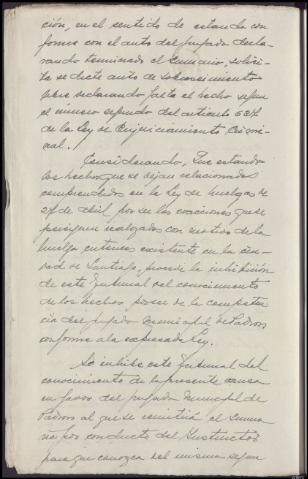 ción, en el sentido de estando con
forme con el auto del Juzgado decla-
rando terminado el Sumario, solici-
ta se dicte auto de sobreseimiento
libre declarando falta el hecho segun
el número segundo del articulo 637
de la Ley de Enjuiciamiento Crimi-
nal.
Considerando, Que estando
los hechos que se dejan relacionados
comprendidos en la Ley de huelgas de
27 de Abril, por ser las coacciones que se
persiguen realizadas con motivo de la
huelga entonces existente en la ciu-
dad de Santiago, procede la inhibición
de este Tribunal del conocimiento
de los hechos por ser de la competen
cia del Juzgado municipal de Padron
conforme a la expresada Ley.
Se inhibe este Tribunal del
conocimiento de la presente causa
en favor del Juzgado municipal de
Padron al que se remitirá el Suma-
rio por conducto del Instructor
para que conozca del mismo segun